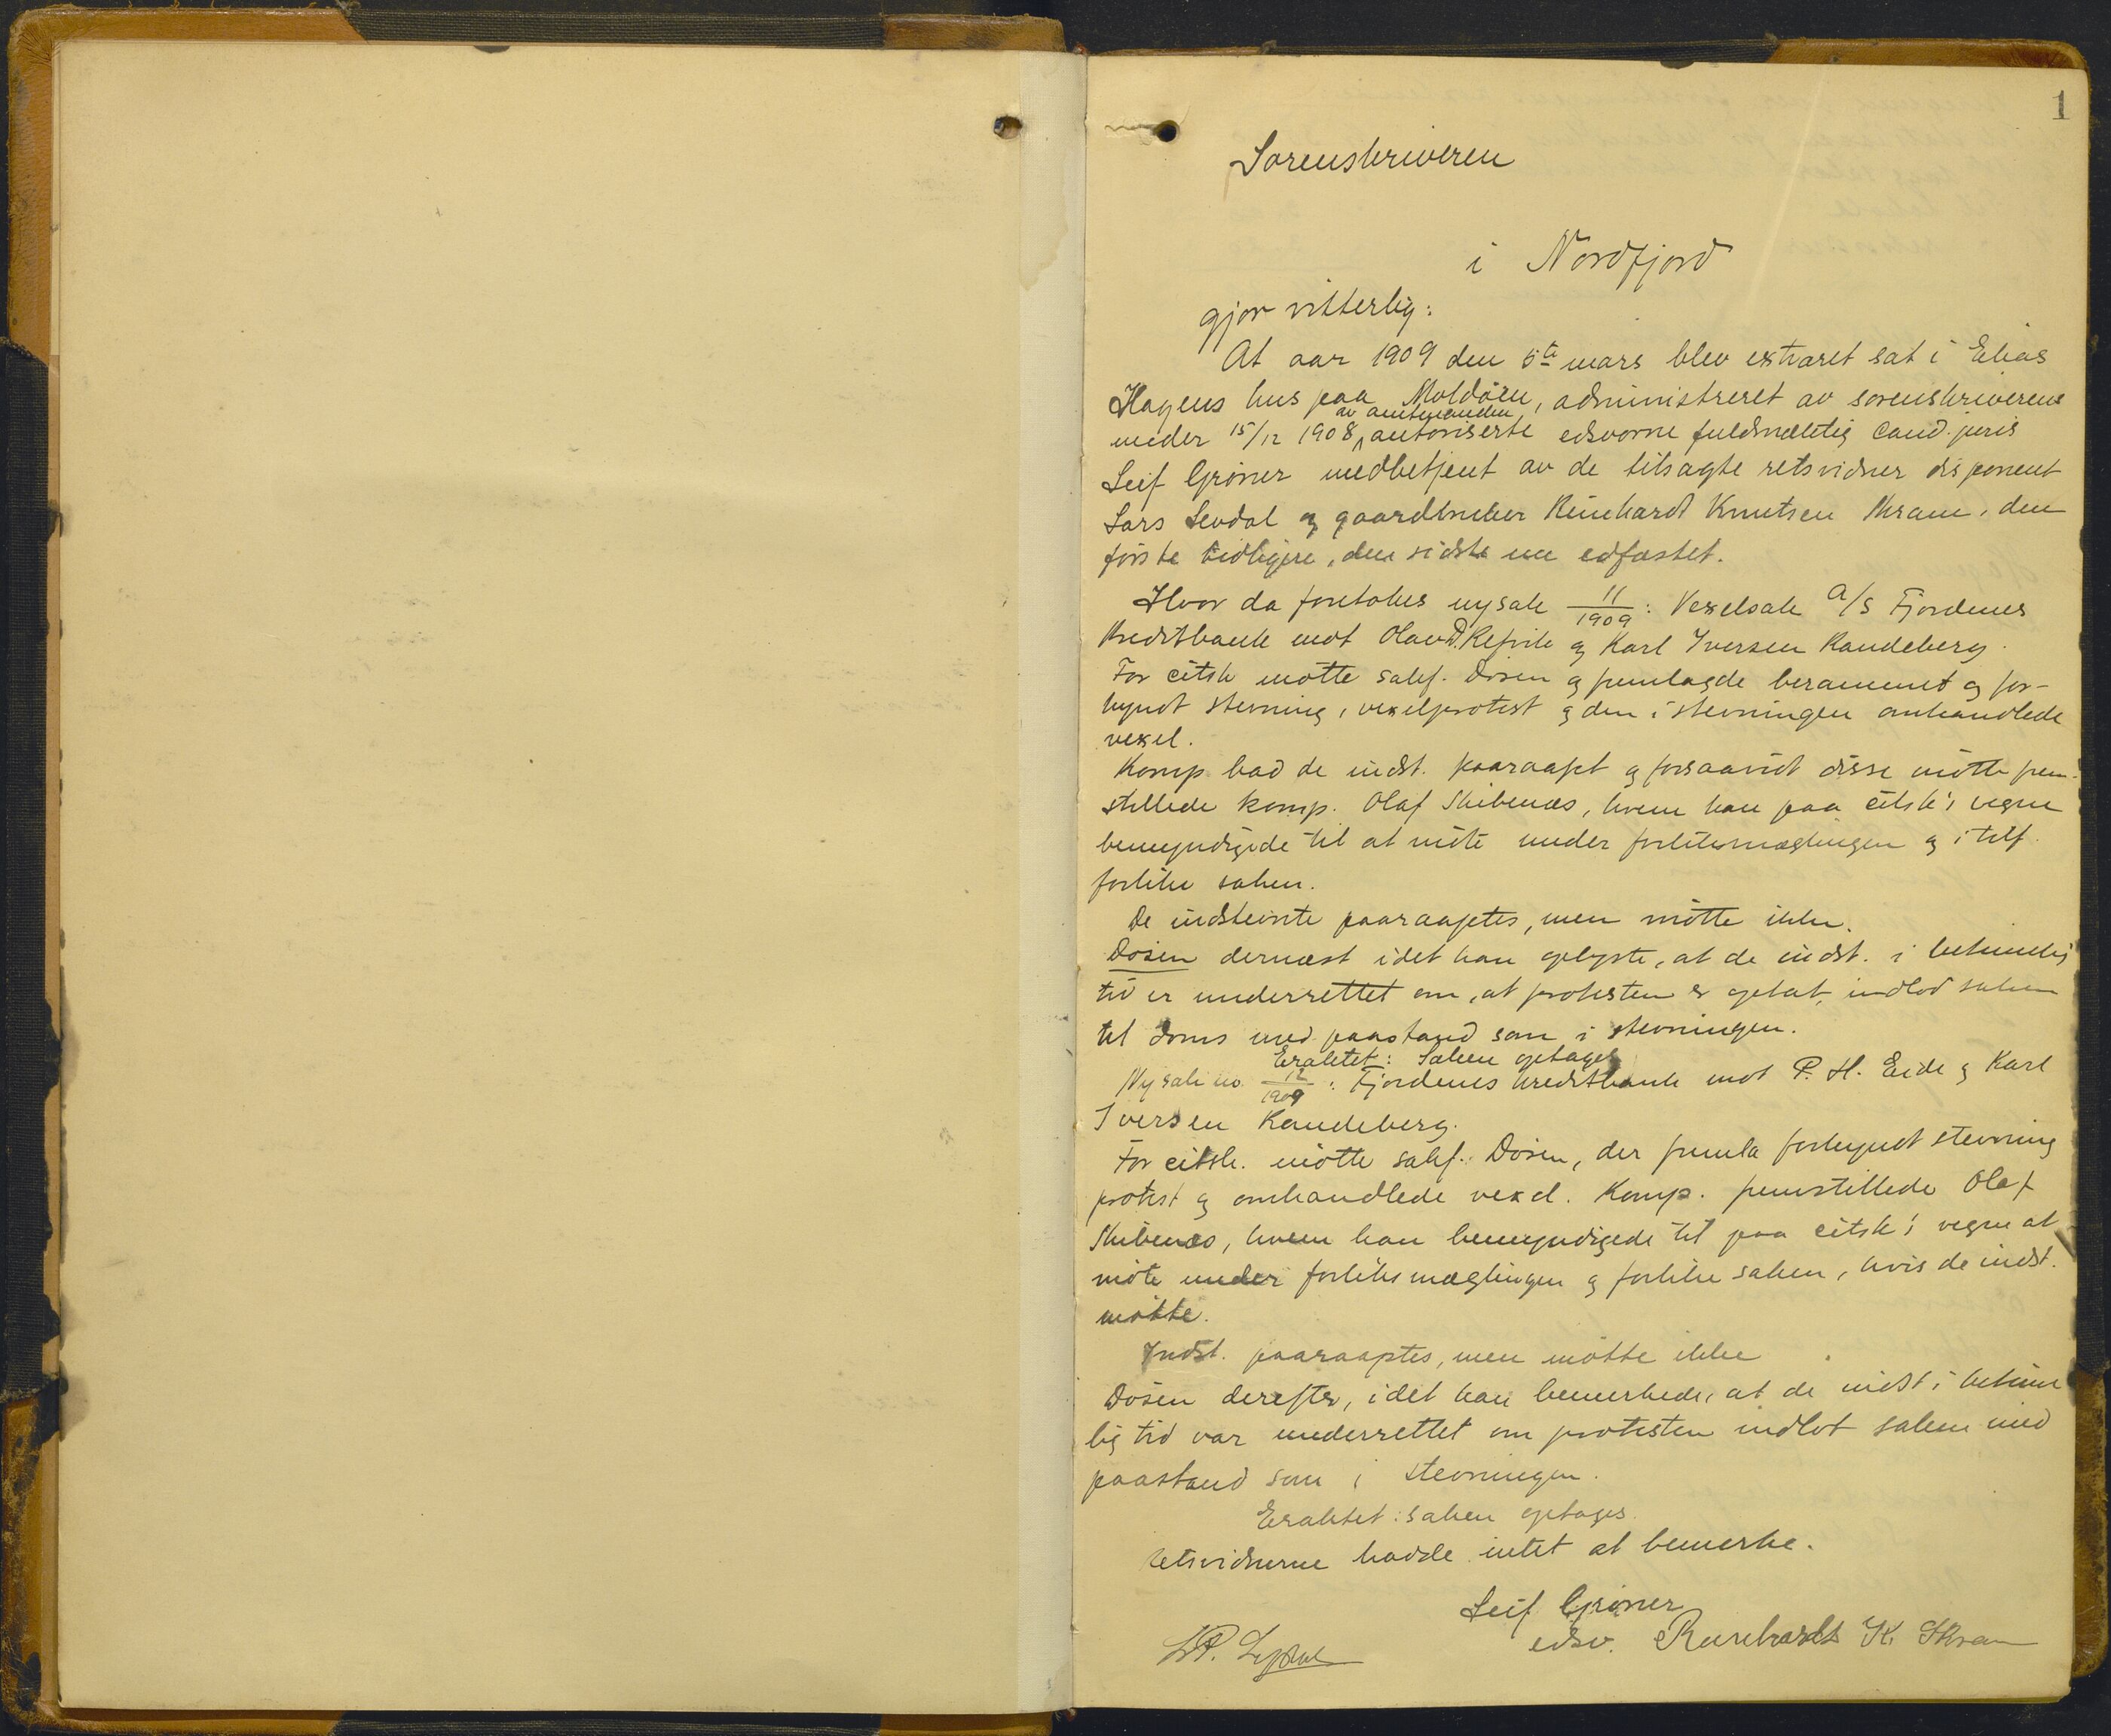 1
Sorenskriveren
i Nordfjord
gjør vitterlig:
At aar 1909 den 5te mars blev extraret sat i Elias
Hagens hus paa Moldøen, administreret av sorenskriverens
under 15/12 1908 av amtmanden autoriserte edsvorne fuldmægtig cand. juris
Leif Grøner medbetjent av de tilsagte retsvidner disponent
Lars Levdal og gaardbruker Reinhardt Knutsen Skram, den
første tidligere, den sidste nu edfæstet.
Hvor da foretokes ny sak 11/1909: Vexelsak A/S Fjordenes
Kreditbank mot Olav D. Refvik og Karl Iversen Randeberg.
For citsk møtte sakf. Døsen og fremlagde berammet og for-
kyndt stevning, vexelprotest og den i stevningen omhandlede
vexel.
Komp bad de indst. paaraapt og forsaavidt disse møtte frem-
stillede komp. Olaf Skibenæs, hvem han paa citsk's vegne
bemyndigede til at møte under forliksmæglingen og i tilf.
forlike saken.
De indstevnte paaraaptes, men møtte ikke.
Døsen dernæst idet han oplyste, at de indst. i betimelig
tid er underrettet om, at protesten er optat, indlod saken
til doms med paastand som i stevningen.
Eraktet: Saken optages
Ny sak no. 12/1909: Fjordenes Kreditbank mot P. H. Eide og Karl
Iversen Randeberg.
For citsk. møtte sakf. Døsen, der fremla forkyndt stevning
protest og omhandlede vexel. Komp. fremstillede Olaf
Skibenæs, hvem han bemyndigede til paa citsk's vegne at
møte under forliksmæglingen og forlike saken, hvis de indst.
møtte.
Indst. paaraaptes, men møtte ikke
Døsen derefter, idet han bemerkede, at de indst i betime
lig tid var underrettet om protesten indlot saken med
paastand som i stevningen.
Eraktet: saken optages.
Retsvidnerne hadde intet at bemerke.
Leif Grøner
edsv. Reinhardt K. Skram